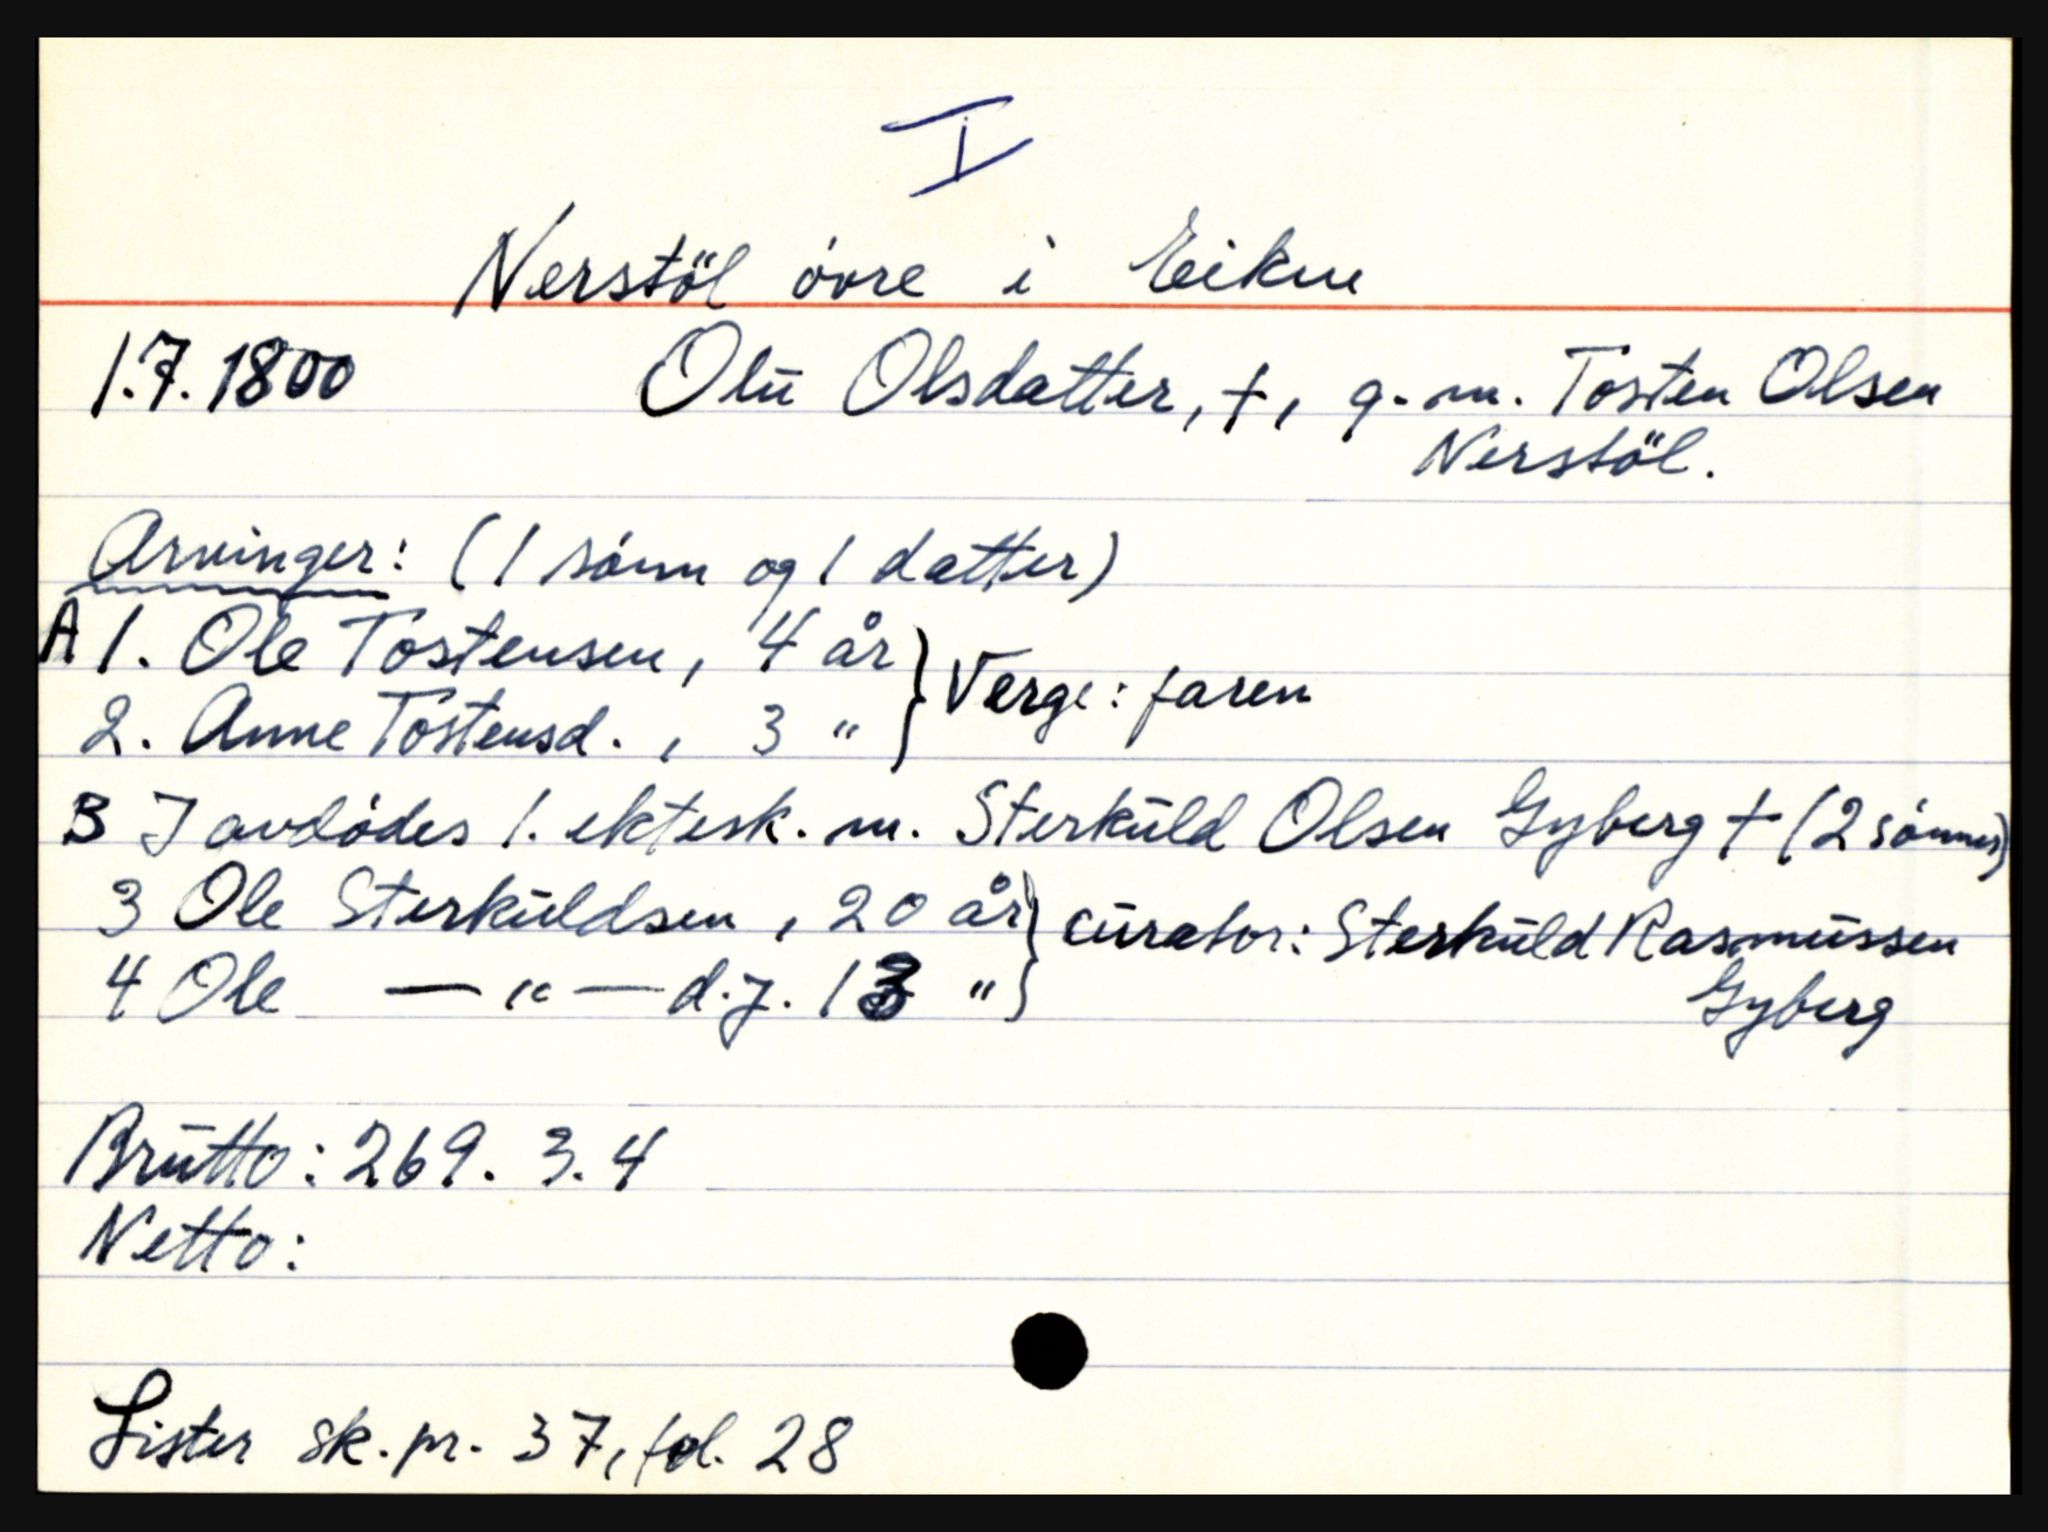 I
Nerstöl övre i Eiken
1.7.1800 Olu Olsdatter, †, g.m. Tosten Olsen
Nerstöl.
Arvinger: (1 sönn og 1 datter)
A 1. Ole Tostensen, 4 år } Verge: faren
2. Anne Tostensd., 3 "
B I avdödes 1. ektesk. m. Sterkuld Olsen Gyberg † (2 sönner)
3 Ole Sterkuldsen, 20 år } curator: Sterkuld Rasmussen
4 Ole — " — d.y. 13 " Gyberg
Brutto: 269. 3. 4
Netto:
Lister sk.pr. 37, fol. 28